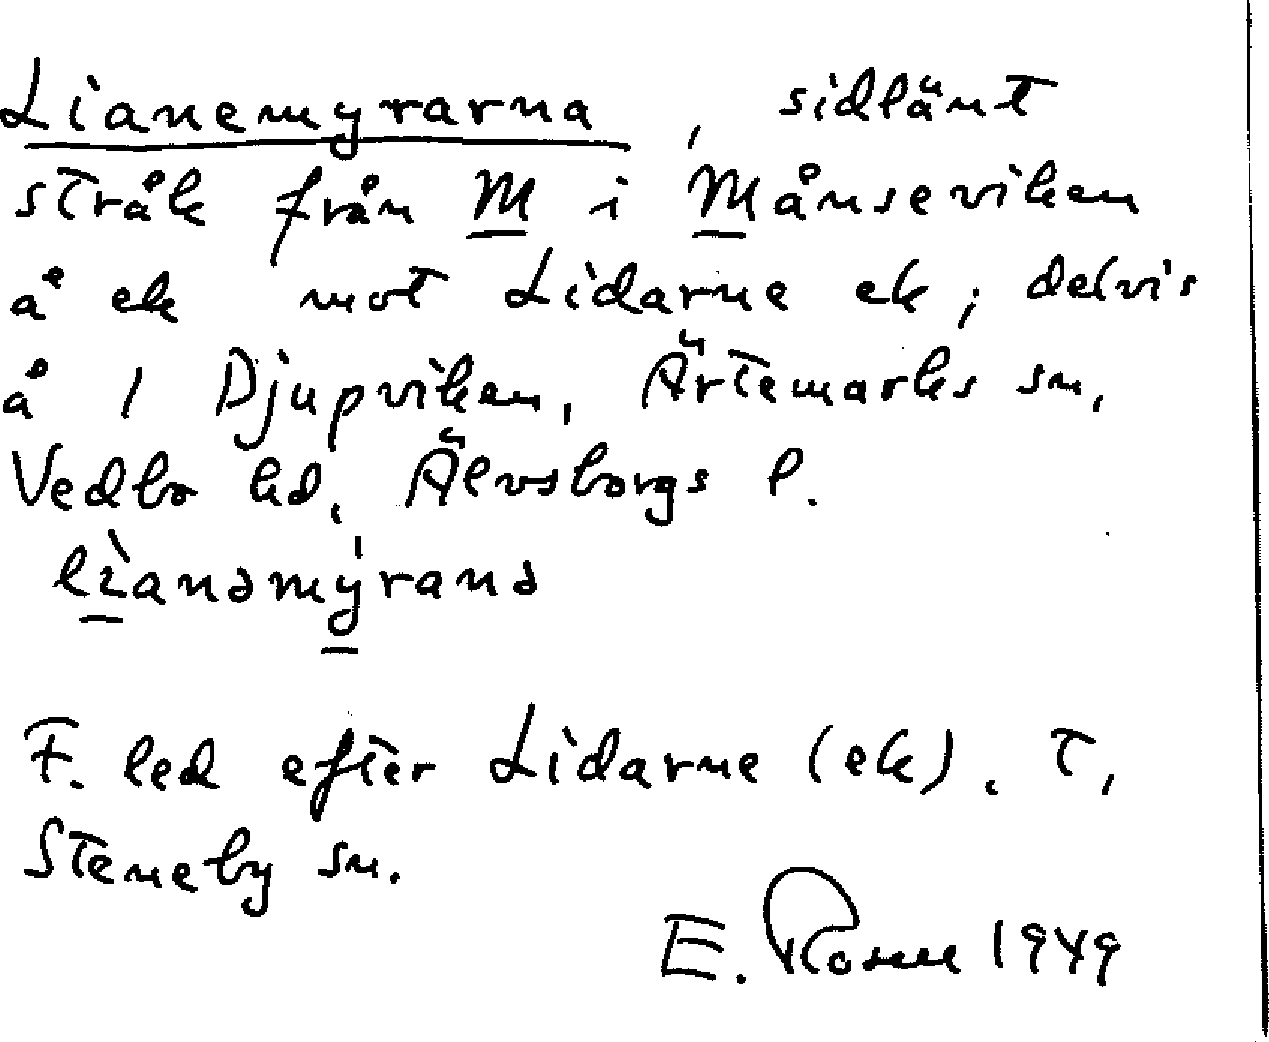 Lianemyrarna, sidlänt
stråk från M i Månseviken
å ek mot Lidarne ek; delvis
å / Djupviken, Ärtemarks sn,
Vedbo hd, Älvsborgs l.
lìanəmýranə
F. led efter Lidarne (ek). T,
Steneby sn.
E. Rosell 1949